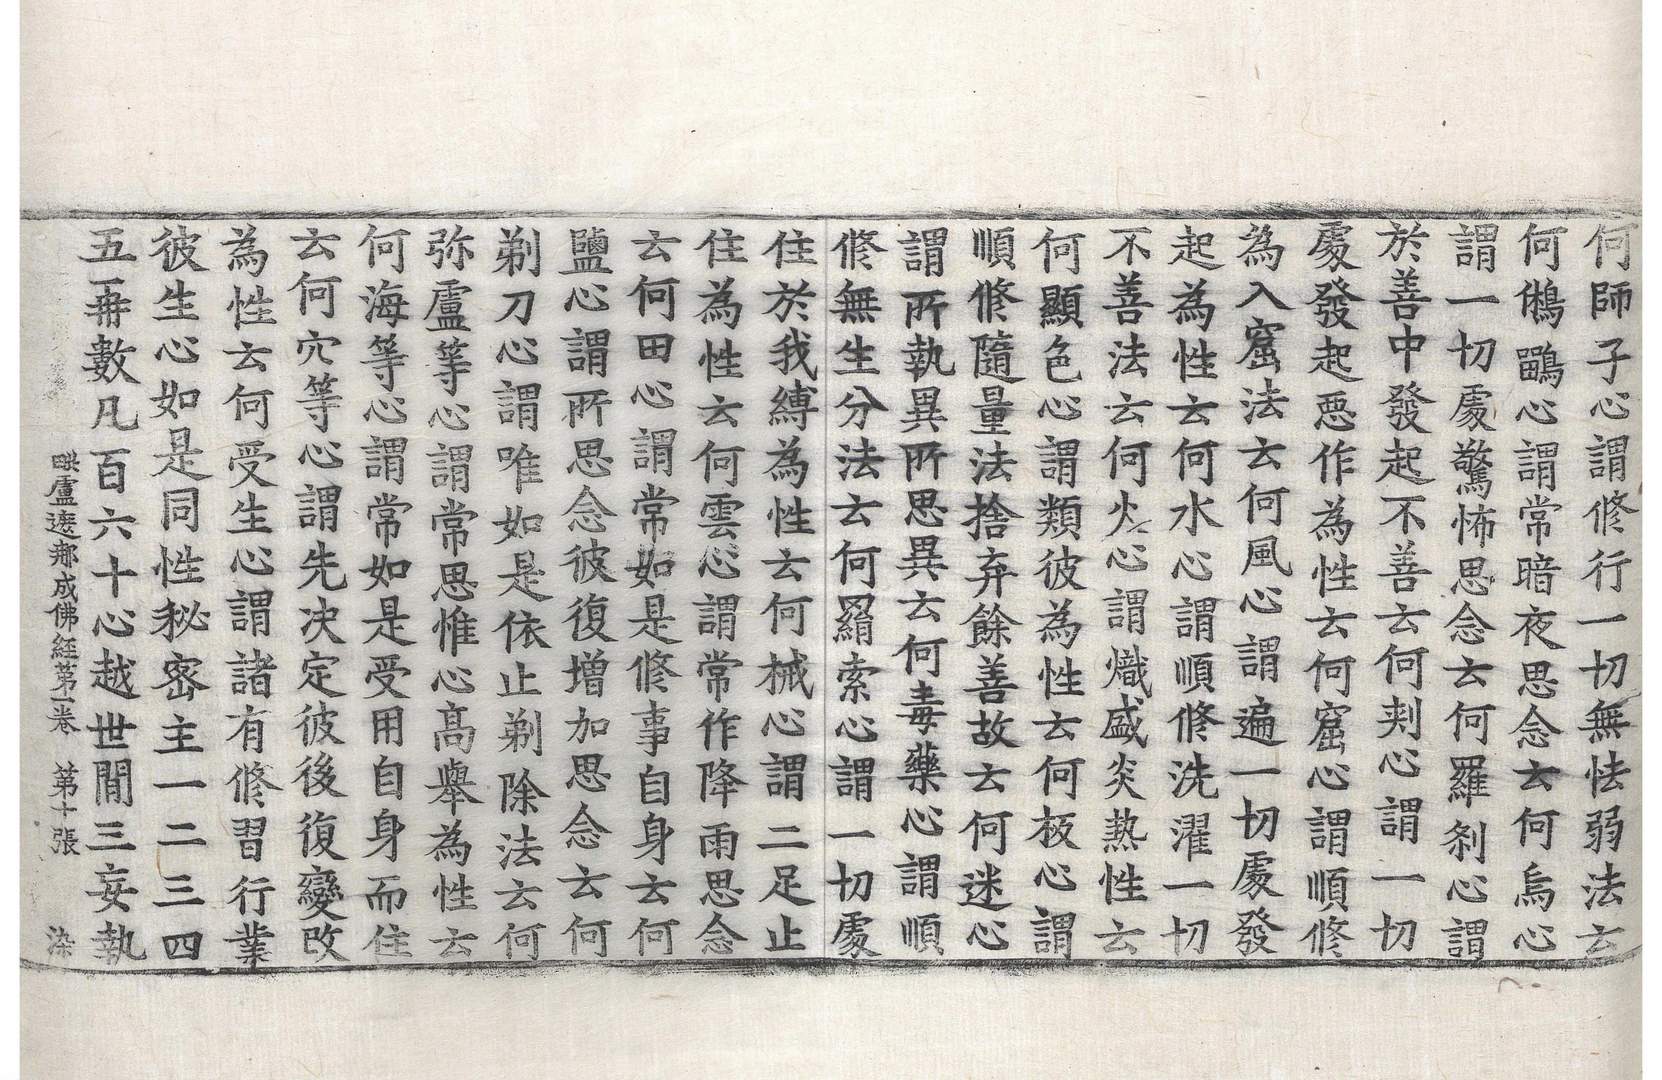 何師子心謂修行一切無怯弱法云
何鵂鶹心謂常暗夜思念云何烏心
謂一切處驚怖思念云何羅刹心謂
於善中發起不善云何刾心謂一切
處發起惡作為性云何窟心謂順修
為入窟法云何風心謂遍一切處發
起為性云何水心謂順修洗濯一切
不善法云何火心謂熾盛炎熱性云
何顯色心謂類彼為性云何板心謂
順修隨量法捨弃餘善故云何迷心
謂所執異所思異云何毒藥心謂順
修無生分法云何羂索心謂一切處
住於我縛為性云何械心謂二足止
住為性云何雲心謂常作降雨思念
云何田心謂常如是修事自身云何
鹽心謂所思念彼復增加思念云何
剃刀心謂唯如是依止剃除法云何
弥盧等心謂常思惟心高舉為性云
何海等心謂常如是受用自身而住
云何穴等心謂先决定彼後復變改
為性云何受生心謂諸有修習行業
彼生心如是同性秘密主一二三四
五再數凡百六十心越世間三妄執
毗盧遮那成佛經第一卷　第十張　染